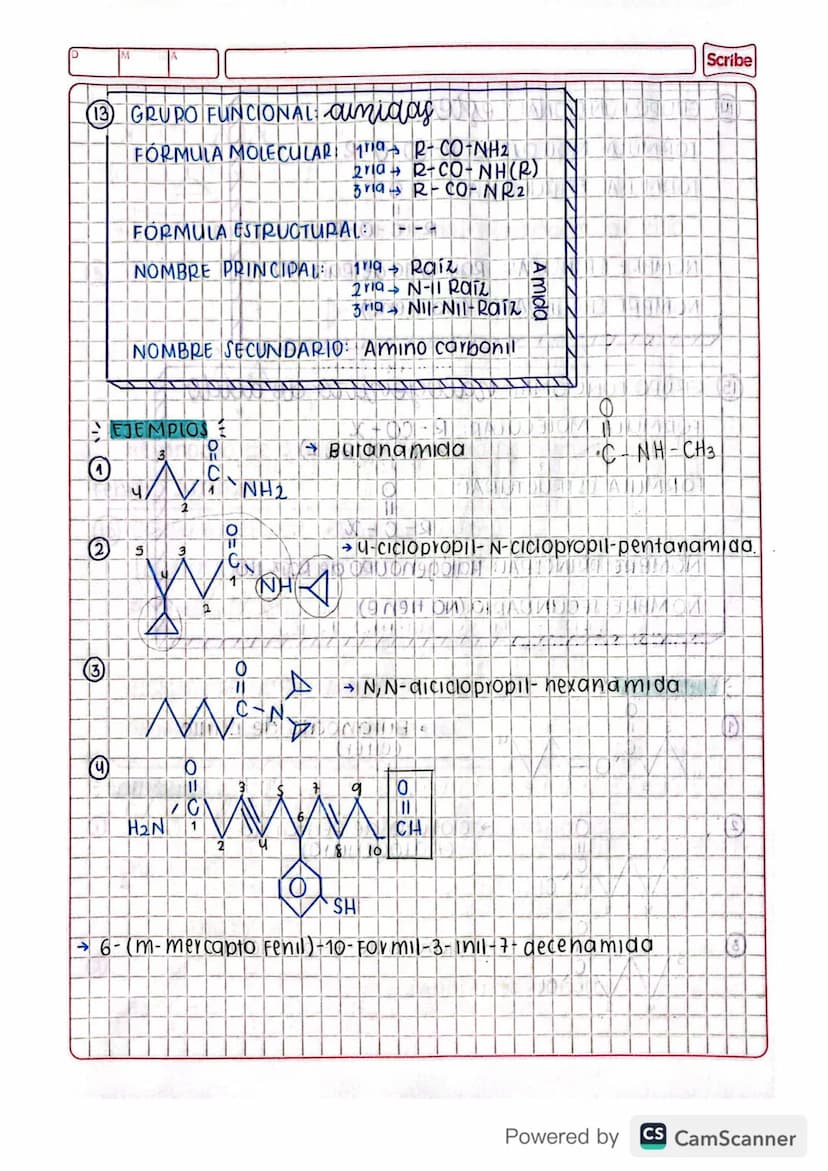 D M A
Scribe
13 GRUPO FUNCIONAL: amidas
FÓRMULA MOLECULAR: 1ria → R-CO-NH2
2ria → R-CO-NH(R)
3ria → R-CO-NR2
FÓRMULA ESTRUCTURAL: ---
NOMBRE PRINCIPAL: 1ria → Raíz
2ria → N-11 Raíz
3ria → N11-N11-Raíz
Amida
NOMBRE SECUNDARIO: Amino carbonil
EJEMPLOS
O
C-NH-CH3
1 → Butanamida
O
C
NH2
4 3 2 1
2 → 4-ciclopropil-N-ciclopropil-pentanamida.
O
C
NH
5 4 3 2 1
3 → N,N-diciclopropil-hexanamida
O
C-N
4
O
C
H2N
1 2 3 4 5 6 7 8 9 10
O
CH
O
SH
→ 6-(m-mercapto fenil)-10-Formil-3-inil-7-decenamida
Powered by CS CamScanner